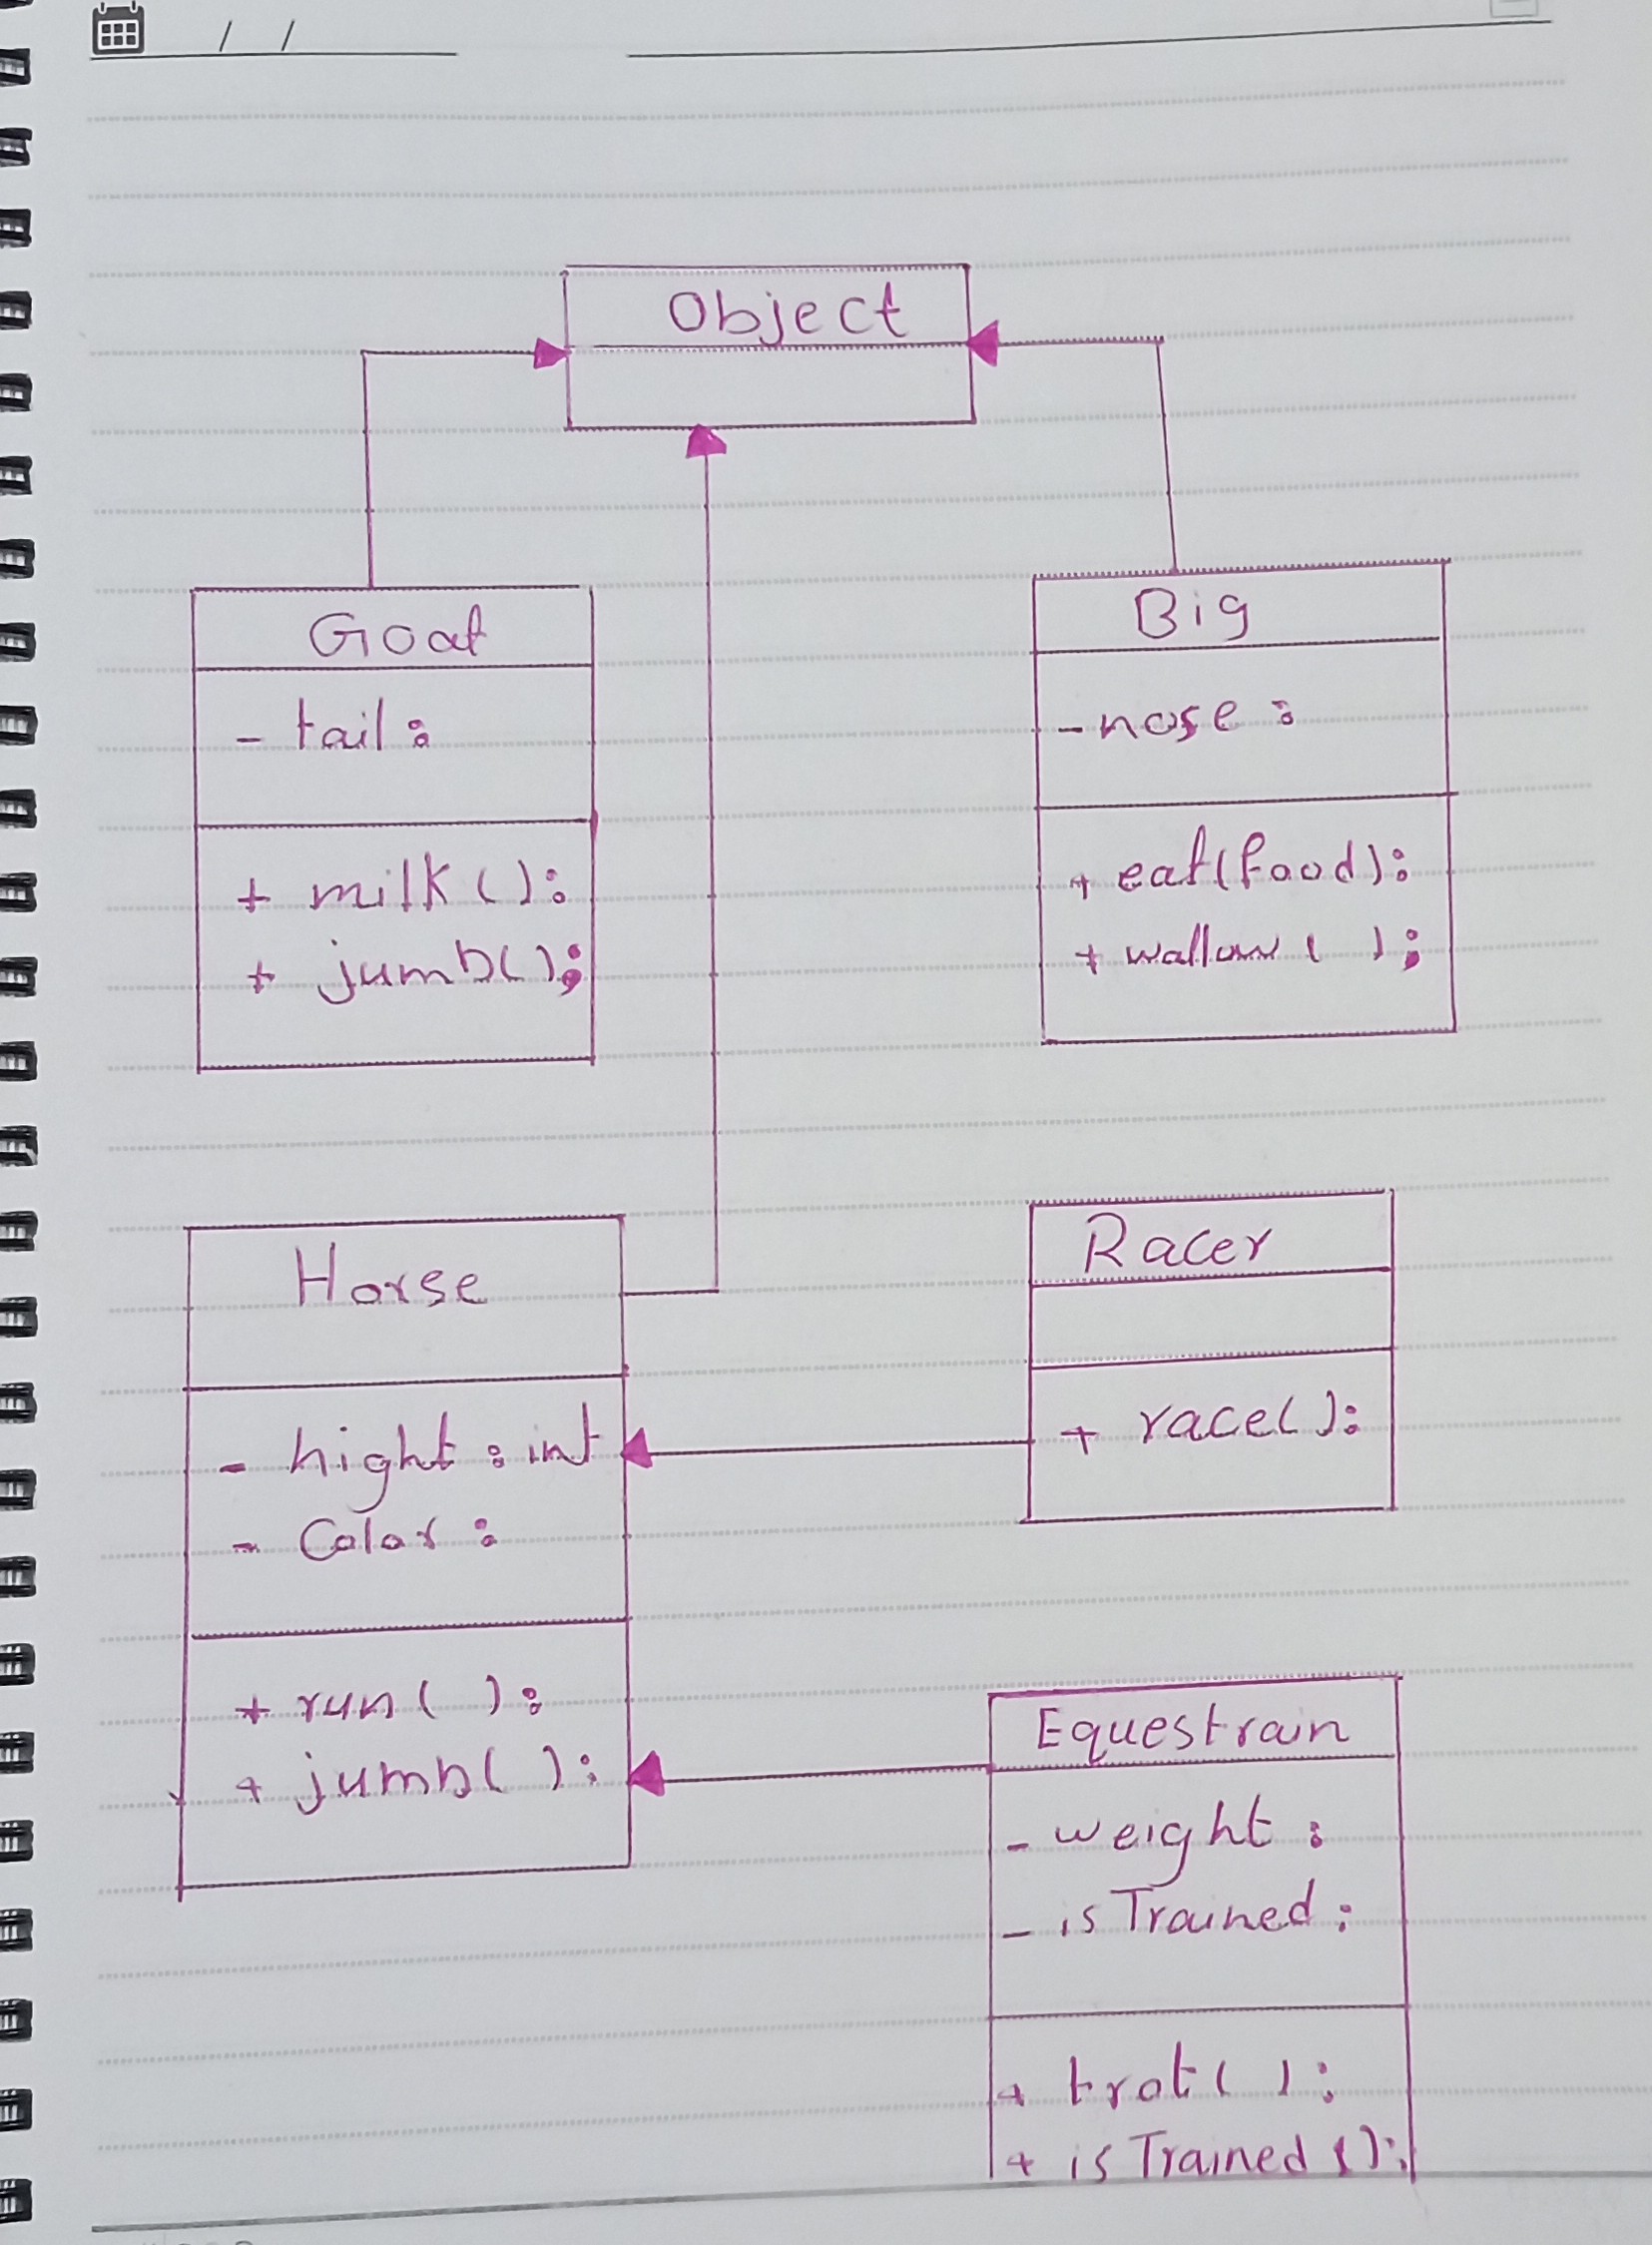 / /
Object
Goat
- tail :
+ milk ( ) :
+ jumb( ) ;
Big
- nose :
+ eat(food) :
+ wallow ( ) ;
Horse
- hight : int
- Color :
+ run( ) :
+ jumb( ) :
Racer
+ race( ) :
Equestrain
- weight :
- isTrained :
+ trot ( ) :
+ isTrained ( ) :